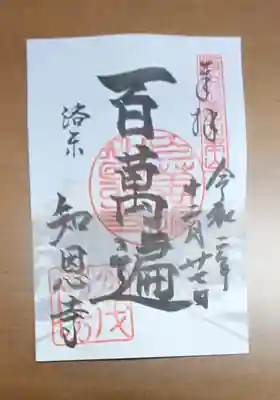 奉拝
令和二年
十二月廿七日
百萬遍
洛東
知恩寺